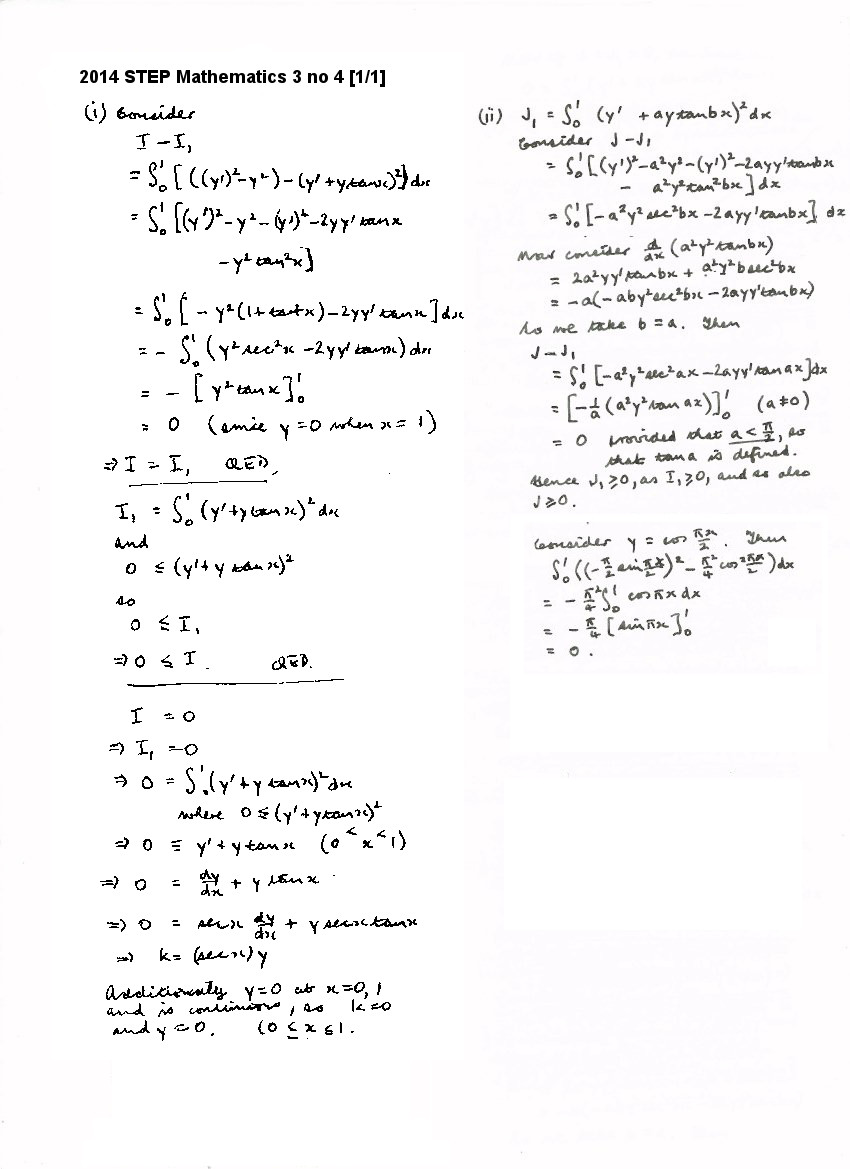 2014 STEP Mathematics 3 no 4 [1/1]
(i) Consider
I − I₁
= ∫₀¹ [ ((y′)² − y²) − (y′ + y tan x)² ] dx
= ∫₀¹ [(y′)² − y² − (y′)² − 2yy′ tan x
− y² tan² x]
= ∫₀¹ [ − y²(1 + tan² x) − 2yy′ tan x ] dx
= − ∫₀¹ (y² sec² x − 2yy′ tan x) dx
= − [ y² tan x ]₀¹
= 0 (since y = 0 when x = 1)
⇒ I = I₁ QED.
I₁ = ∫₀¹ (y′ + y tan x)² dx
and
0 ≤ (y′ + y tan x)²
so
0 ≤ I₁
⇒ 0 ≤ I. QED.
I = 0
⇒ I₁ = 0
⇒ 0 = ∫₀¹ (y′ + y tan x)² dx
where 0 ≤ (y′ + y tan x)²
⇒ 0 ≡ y′ + y tan x (0 < x < 1)
⇒ 0 = dy/dx + y tan x
⇒ 0 = sec x dy/dx + y sec x tan x
⇒ k = (sec x) y
Additionally y = 0 at x = 0, 1
and is continuous, so k = 0
and y = 0. (0 ≤ x ≤ 1.
(ii) J₁ = ∫₀¹ (y′ + ay tan bx)² dx
Consider J − J₁
= ∫₀¹ [(y′)² − a²y² − (y′)² − 2ayy′ tan bx
− a²y² tan² bx ] dx
= ∫₀¹ [−a²y² sec² bx − 2ayy′ tan bx] dx
Now consider d/dx (a²y² tan bx)
= 2a²yy′ tan bx + a²y² b sec² bx
= −a(−aby² sec² bx − 2ayy′ tan bx)
So we take b = a. Then
J − J₁
= ∫₀¹ [−a²y² sec² ax − 2ayy′ tan ax] dx
= [−1/a (a²y² tan ax)]₀¹ (a ≠ 0)
= 0 provided that a < π/2, so
that tan a is defined.
Hence J₁ ≥ 0, as I₁ ≥ 0, and so also
J ≥ 0.
Consider y = cos πx/2. Then
∫₀¹ ((−π/2 sin πx/2)² − π²/4 cos² πx/2) dx
= − π²/4 ∫₀¹ cos πx dx
= − π/4 [sin πx]₀¹
= 0.